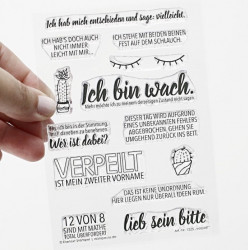 Ich hab mich entschieden und sage: vielleicht.
ICH HAB'S DOCH AUCH
NICHT IMMER
LEICHT MIT MIR...
ICH STEHE MIT BEIDEN BEINEN
FEST AUF DEM SCHLAUCH.
Ich bin wach.
Mehr möchte ich zu meinem derzeitigen Zustand nicht sagen.
bis in die Stimmung,
Wort abreisen zu benehmen.
Wer ist dabei?
DIESER TAG WIRD AUFGRUND
EINES UNBEKANNTEN FEHLERS
ABGEBROCHEN, GEHEN SIE
UMGEHEND ZURÜCK INS BETT.
VERPEILT
IST MEIN ZWEITER VORNAME
DAS IST KEINE UNORDNUNG
HIER LIEGEN NUR ÜBERALL IDEEN RUM.
12 VON 8
SIND MIT MATHE
TOTAL ÜBERFORDERT
lieb sein bitte